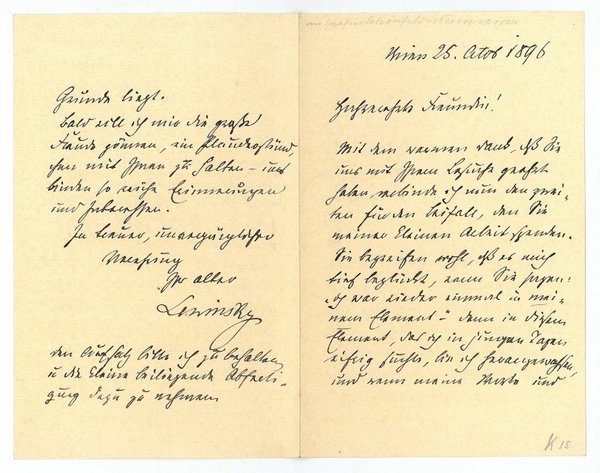 Wien 25. Octob 1896
Hochverehrte Freundin!
Mit dem warmen Dank, daß Sie
uns mit Ihrem Besuche geehrt
haben, verbinde ich nun den zwei-
ten für den Beifall, den Sie
meiner kleinen Arbeit spenden.
Sie begreifen wohl, daß es mich
tief beglückt, wenn Sie sagen:
ich war wieder einmal in mei-
nem Element u denn in diesem
Element, das ich in jungen Tagen
eifrig suchte, bin ich herangewachsen,
und wenn meine Worte und
Grunde liegt.
Bald will ich mir die große
Freude gönnen, ein Plauderstünd-
chen mit Ihnen zu halten – uns
binden so reiche Erinnerungen
und Interessen.
In treuer, unvergänglicher
Verehrung
Ihr alter
Lewinsky
den Aufsatz bitte ich zu behalten
u die kleine beiliegende
dazu zu nehmen
K 15.